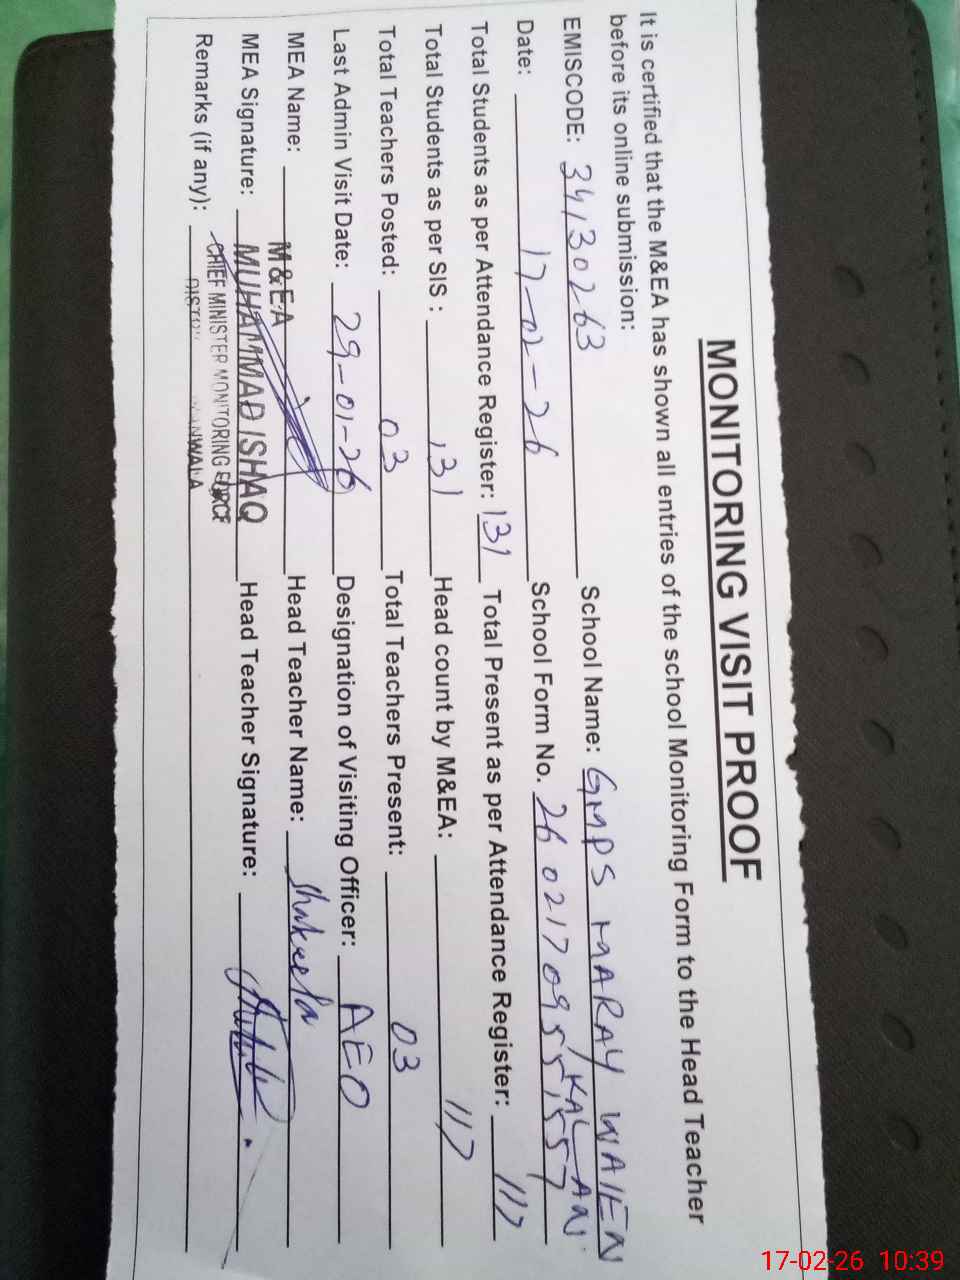 MONITORING VISIT PROOF
It is certified that the M&EA has shown all entries of the school Monitoring Form to the Head Teacher
before its online submission:
EMISCODE: 34130263 School Name: GMPS MARAY WALEN
KALAN
Date: 17-02-26 School Form No. 26021709551557
Total Students as per Attendance Register: 131 Total Present as per Attendance Register: 117
Total Students as per SIS : 131 Head count by M&EA: 117
Total Teachers Posted: 03 Total Teachers Present: 03
Last Admin Visit Date: 29-01-26 Designation of Visiting Officer: AEO
MEA Name: M&EA Head Teacher Name: Shakeela
MEA Signature: MUHAMMAD ISHAQ Head Teacher Signature:
Remarks (if any): CHIEF MINISTER MONITORING FORCE
17-02-26 10:39